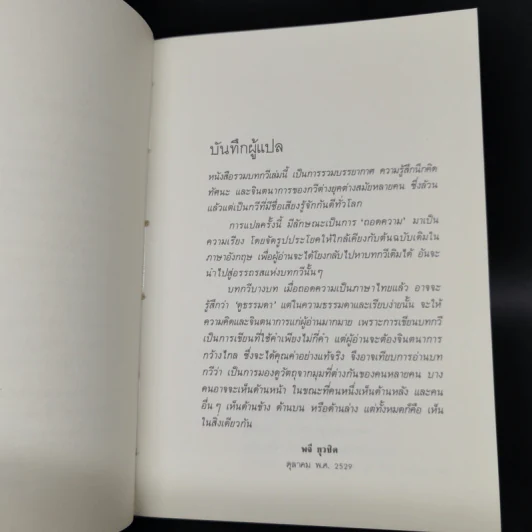 บันทึกผู้แปล
หนังสือรวมบทกวีเล่มนี้ เป็นการรวมบรรยากาศ ความรู้สึกนึกคิด
ทัศนะ และจินตนาการของกวีต่างยุคต่างสมัยหลายคน ซึ่งล้วน
แล้วแต่เป็นกวีที่มีชื่อเสียงรู้จักกันดีทั่วโลก
การแปลครั้งนี้ มีลักษณะเป็นการ 'ถอดความ' มาเป็น
ความเรียง โดยจัดรูปประโยคให้ใกล้เคียงกับต้นฉบับเดิมใน
ภาษาอังกฤษ เพื่อผู้อ่านจะได้โยงกลับไปหาบทกวีเดิมได้ อันจะ
นำไปสู่อรรถรสแห่งบทกวีนั้นๆ
บทกวีบางบท เมื่อถอดความเป็นภาษาไทยแล้ว อาจจะ
รู้สึกว่า 'ดูธรรมดา' แต่ในความธรรมดาและเรียบง่ายนั้น จะให้
ความคิดและจินตนาการแก่ผู้อ่านมากมาย เพราะการเขียนบทกวี
เป็นการเขียนที่ใช้คำเพียงไม่กี่คำ แต่ผู้อ่านจะต้องจินตนาการ
กว้างไกล ซึ่งจะได้คุณค่าอย่างแท้จริง จึงอาจเทียบการอ่านบท
กวีว่า เป็นการมองดูวัตถุจากมุมที่ต่างกันของคนหลายคน บาง
คนอาจจะเห็นด้านหน้า ในขณะที่คนหนึ่งเห็นด้านหลัง และคน
อื่นๆ เห็นด้านข้าง ด้านบน หรือด้านล่าง แต่ทั้งหมดก็คือ เห็น
ในสิ่งเดียวกัน
พจี ยุวชิต
ตุลาคม พ.ศ. 2529